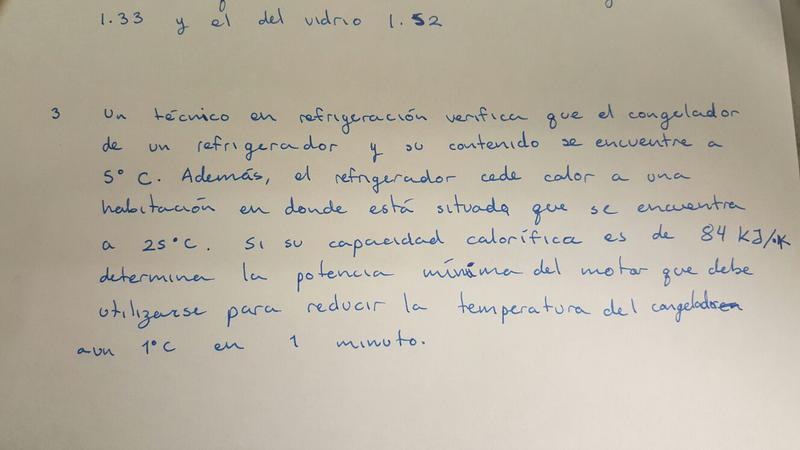 1.33 y el del vidrio 1.52
3 Un técnico en refrigeración verifica que el congelador
de un refrigerador y su contenido se encuentre a
5° C. Además, el refrigerador cede calor a una
habitación en donde está situada que se encuentra
a 25°C. Si su capacidad calorífica es de 84 KJ/°K
determina la potencia mínima del motor que debe
utilizarse para reducir la temperatura del congelador
aun 1°C en 1 minuto.